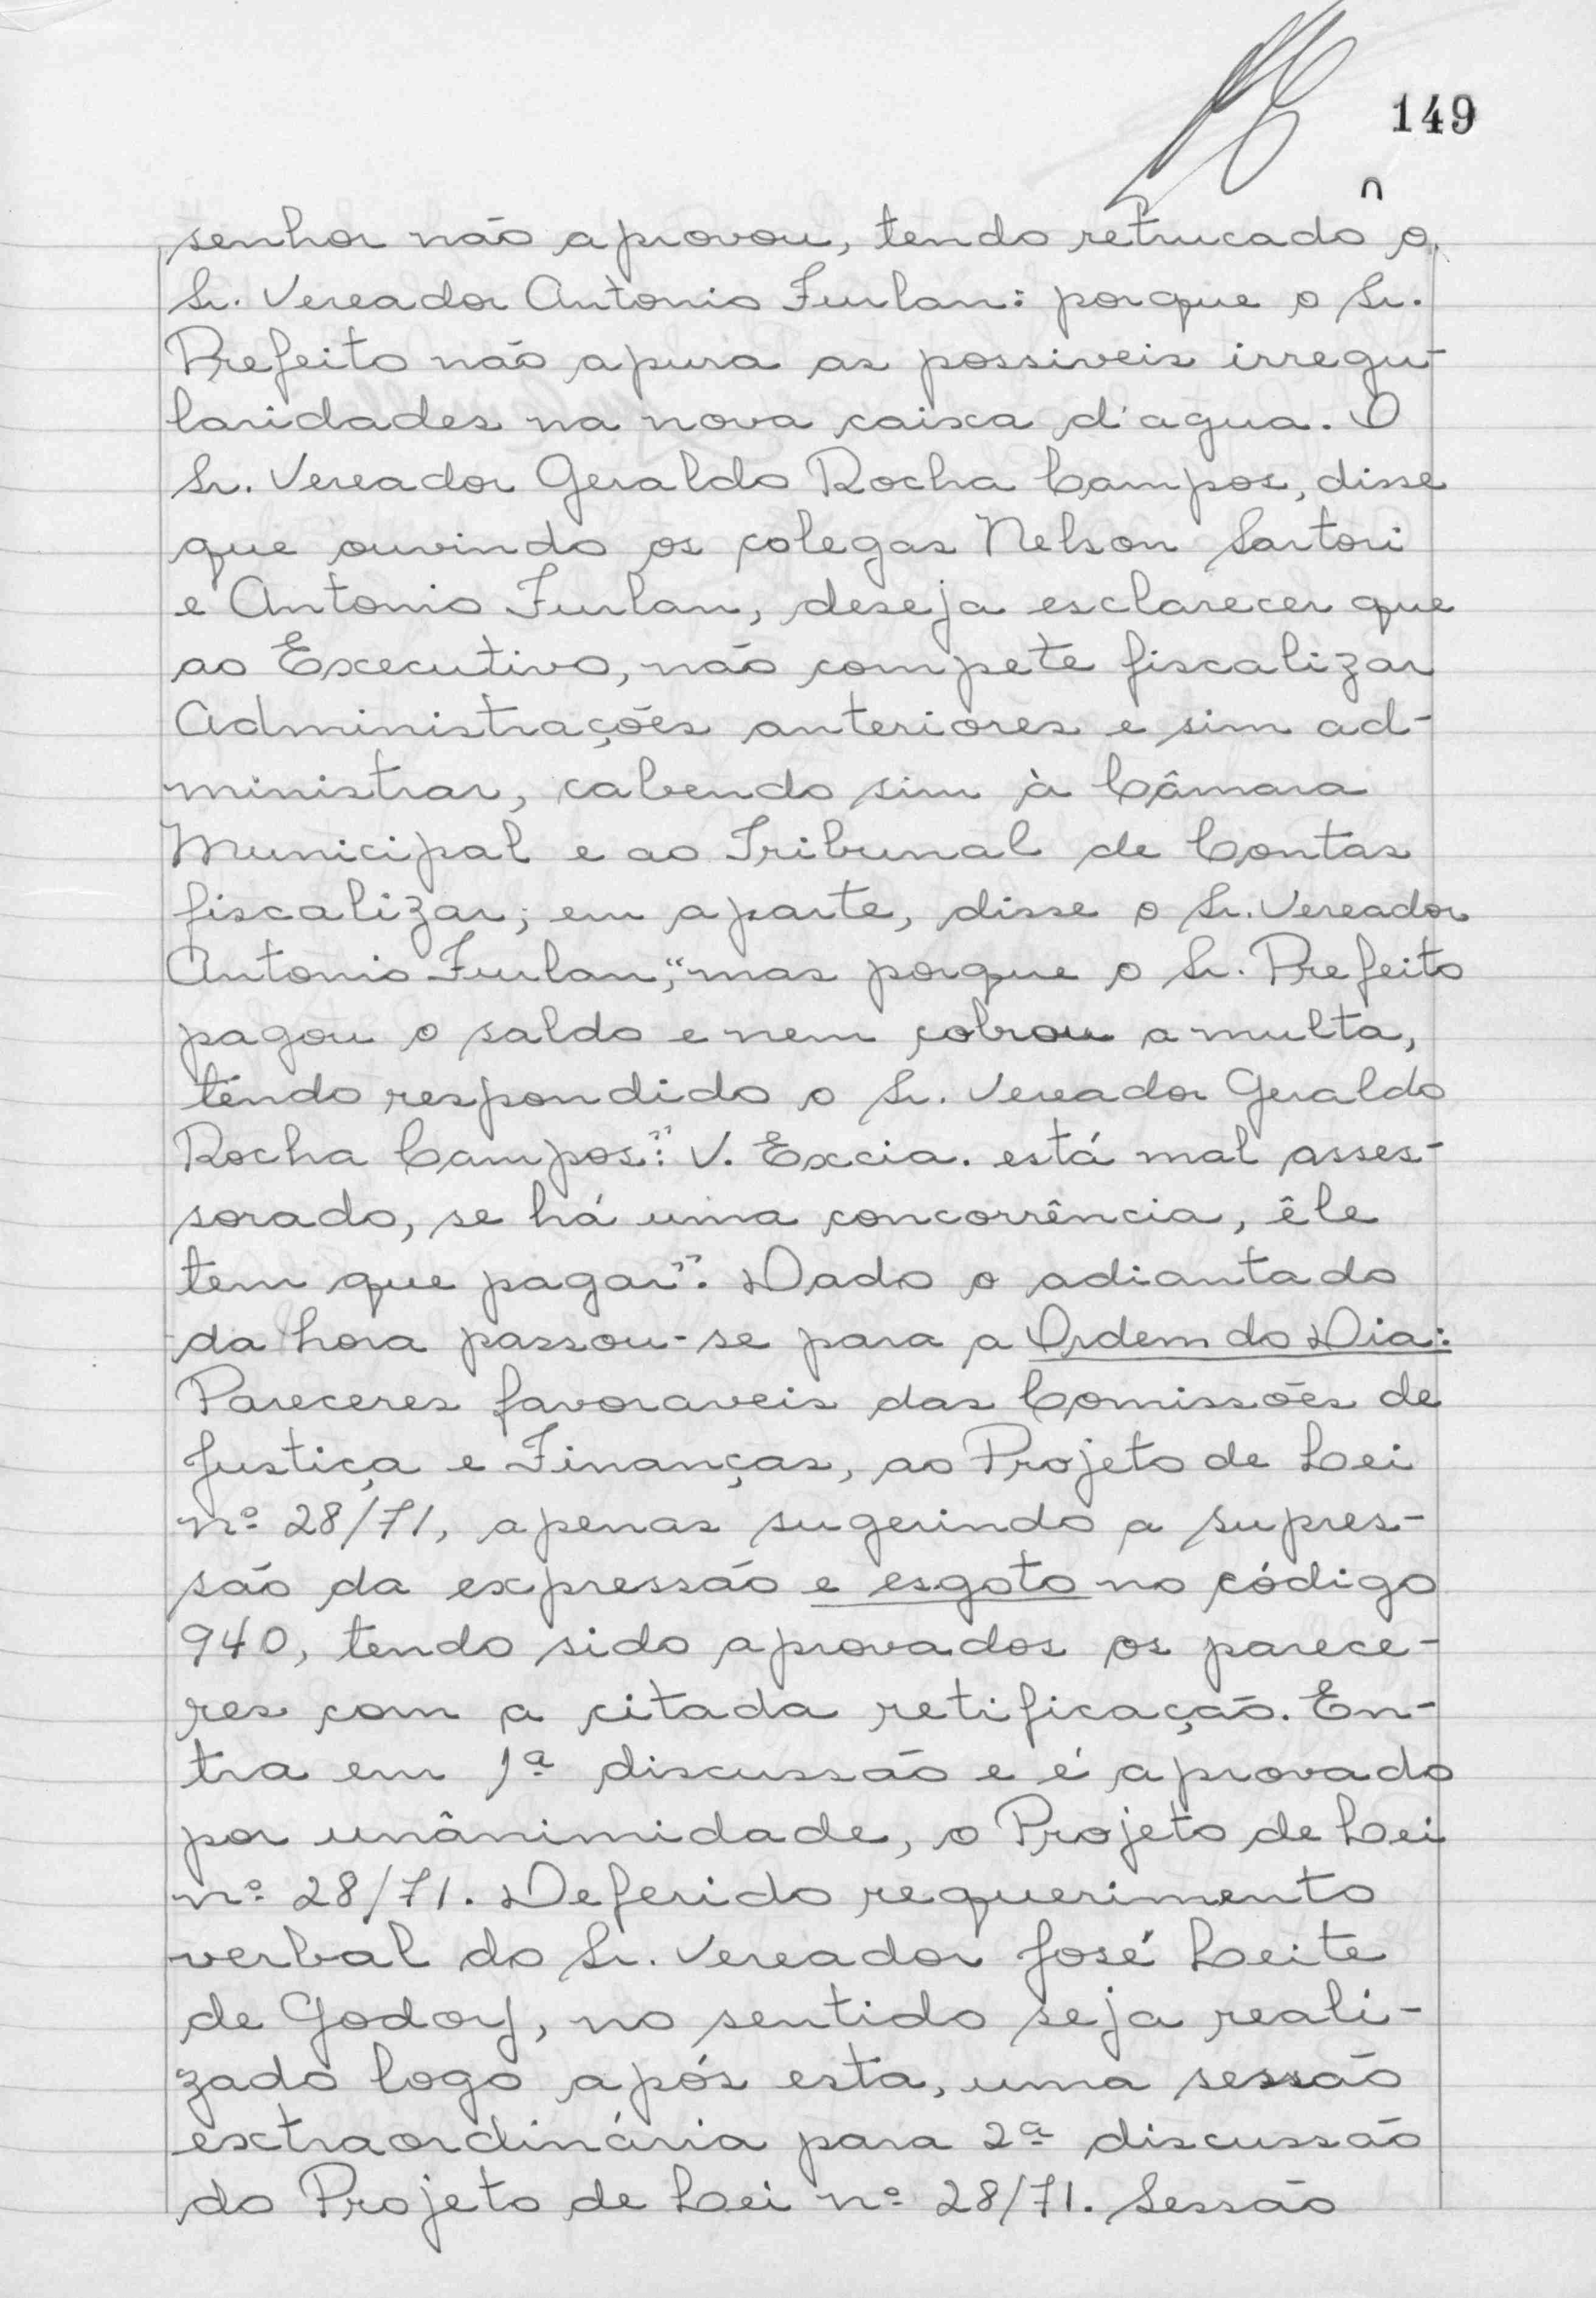 149
senhor não aprovou, tendo retrucado o
Sr. Vereador Antonio Furlan: porque o Sr.
Prefeito não apura as possiveis irregu-
laridades na nova caixa d'agua. O
Sr. Vereador Geraldo Rocha Campos, disse
que ouvindo os colegas Nelson Sartori
e Antonio Furlan, deseja esclarecer que
ao Executivo, não compete fiscalizar
Administrações anteriores e sim ad-
ministrar, cabendo sim à Câmara
Municipal e ao Tribunal de Contas
fiscalizar; em aparte, disse o Sr. Vereador
Antonio Furlan, "mas porque o Sr. Prefeito
pagou o saldo e nem cobrou a multa,
tendo respondido o Sr. Vereador Geraldo
Rocha Campos:" V. Excia. está mal asses-
sorado, se há uma concorrência, êle
tem que pagar". Dado o adiantado
da hora passou-se para a Ordem do Dia:
Pareceres favoraveis das Comissões de
Justiça e Finanças, ao Projeto de Lei
nº 28/71, apenas sugerindo a supres-
são da expressão e esgoto no código
940, tendo sido aprovados os parece-
res com a citada retificação. En-
tra em 1ª discussão e é aprovado
por unânimidade, o Projeto de Lei
nº 28/71. Deferido requerimento
verbal do Sr. Vereador José Leite
de Godoy, no sentido seja reali-
zado logo após esta, uma sessão
extraordinária para 2ª discussão
do Projeto de Lei nº 28/71. Sessão